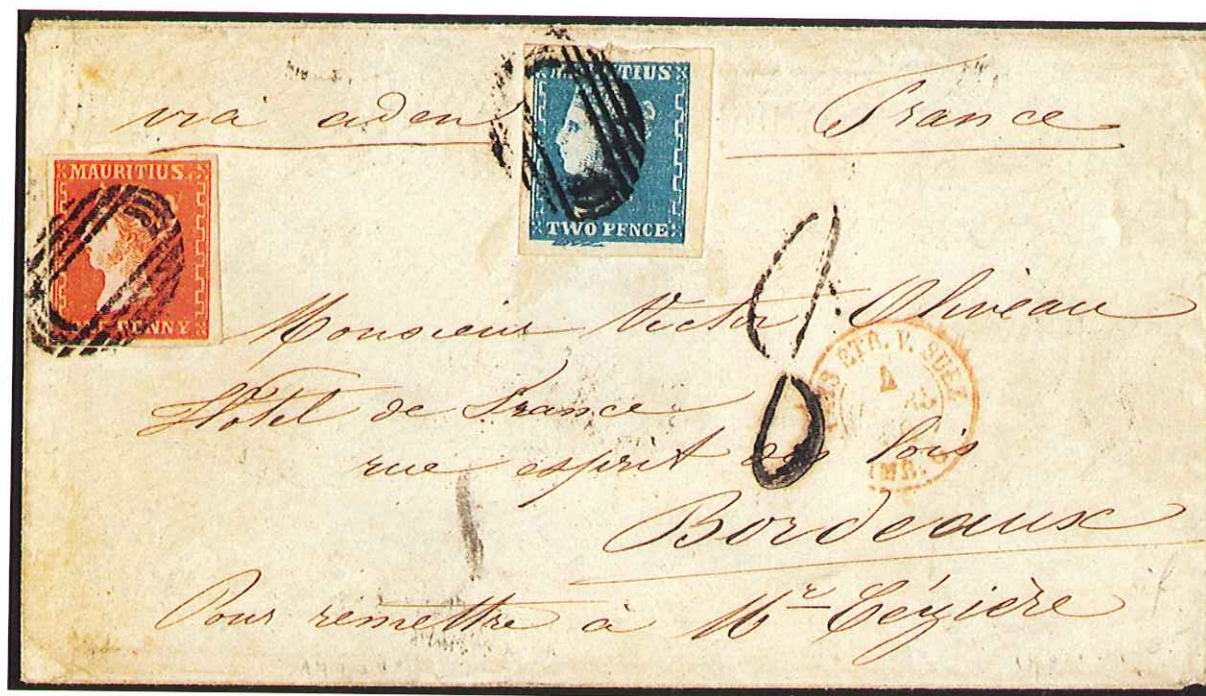 via aden
France
MAURITIUS
TWO PENCE
MAURITIUS
PENNY
8
Monsieur Victor Oliveau
Hôtel de France
rue esprit des lois
Bordeaux
Pour remettre à Mr Cézière
ETR. V. SUEZ
4